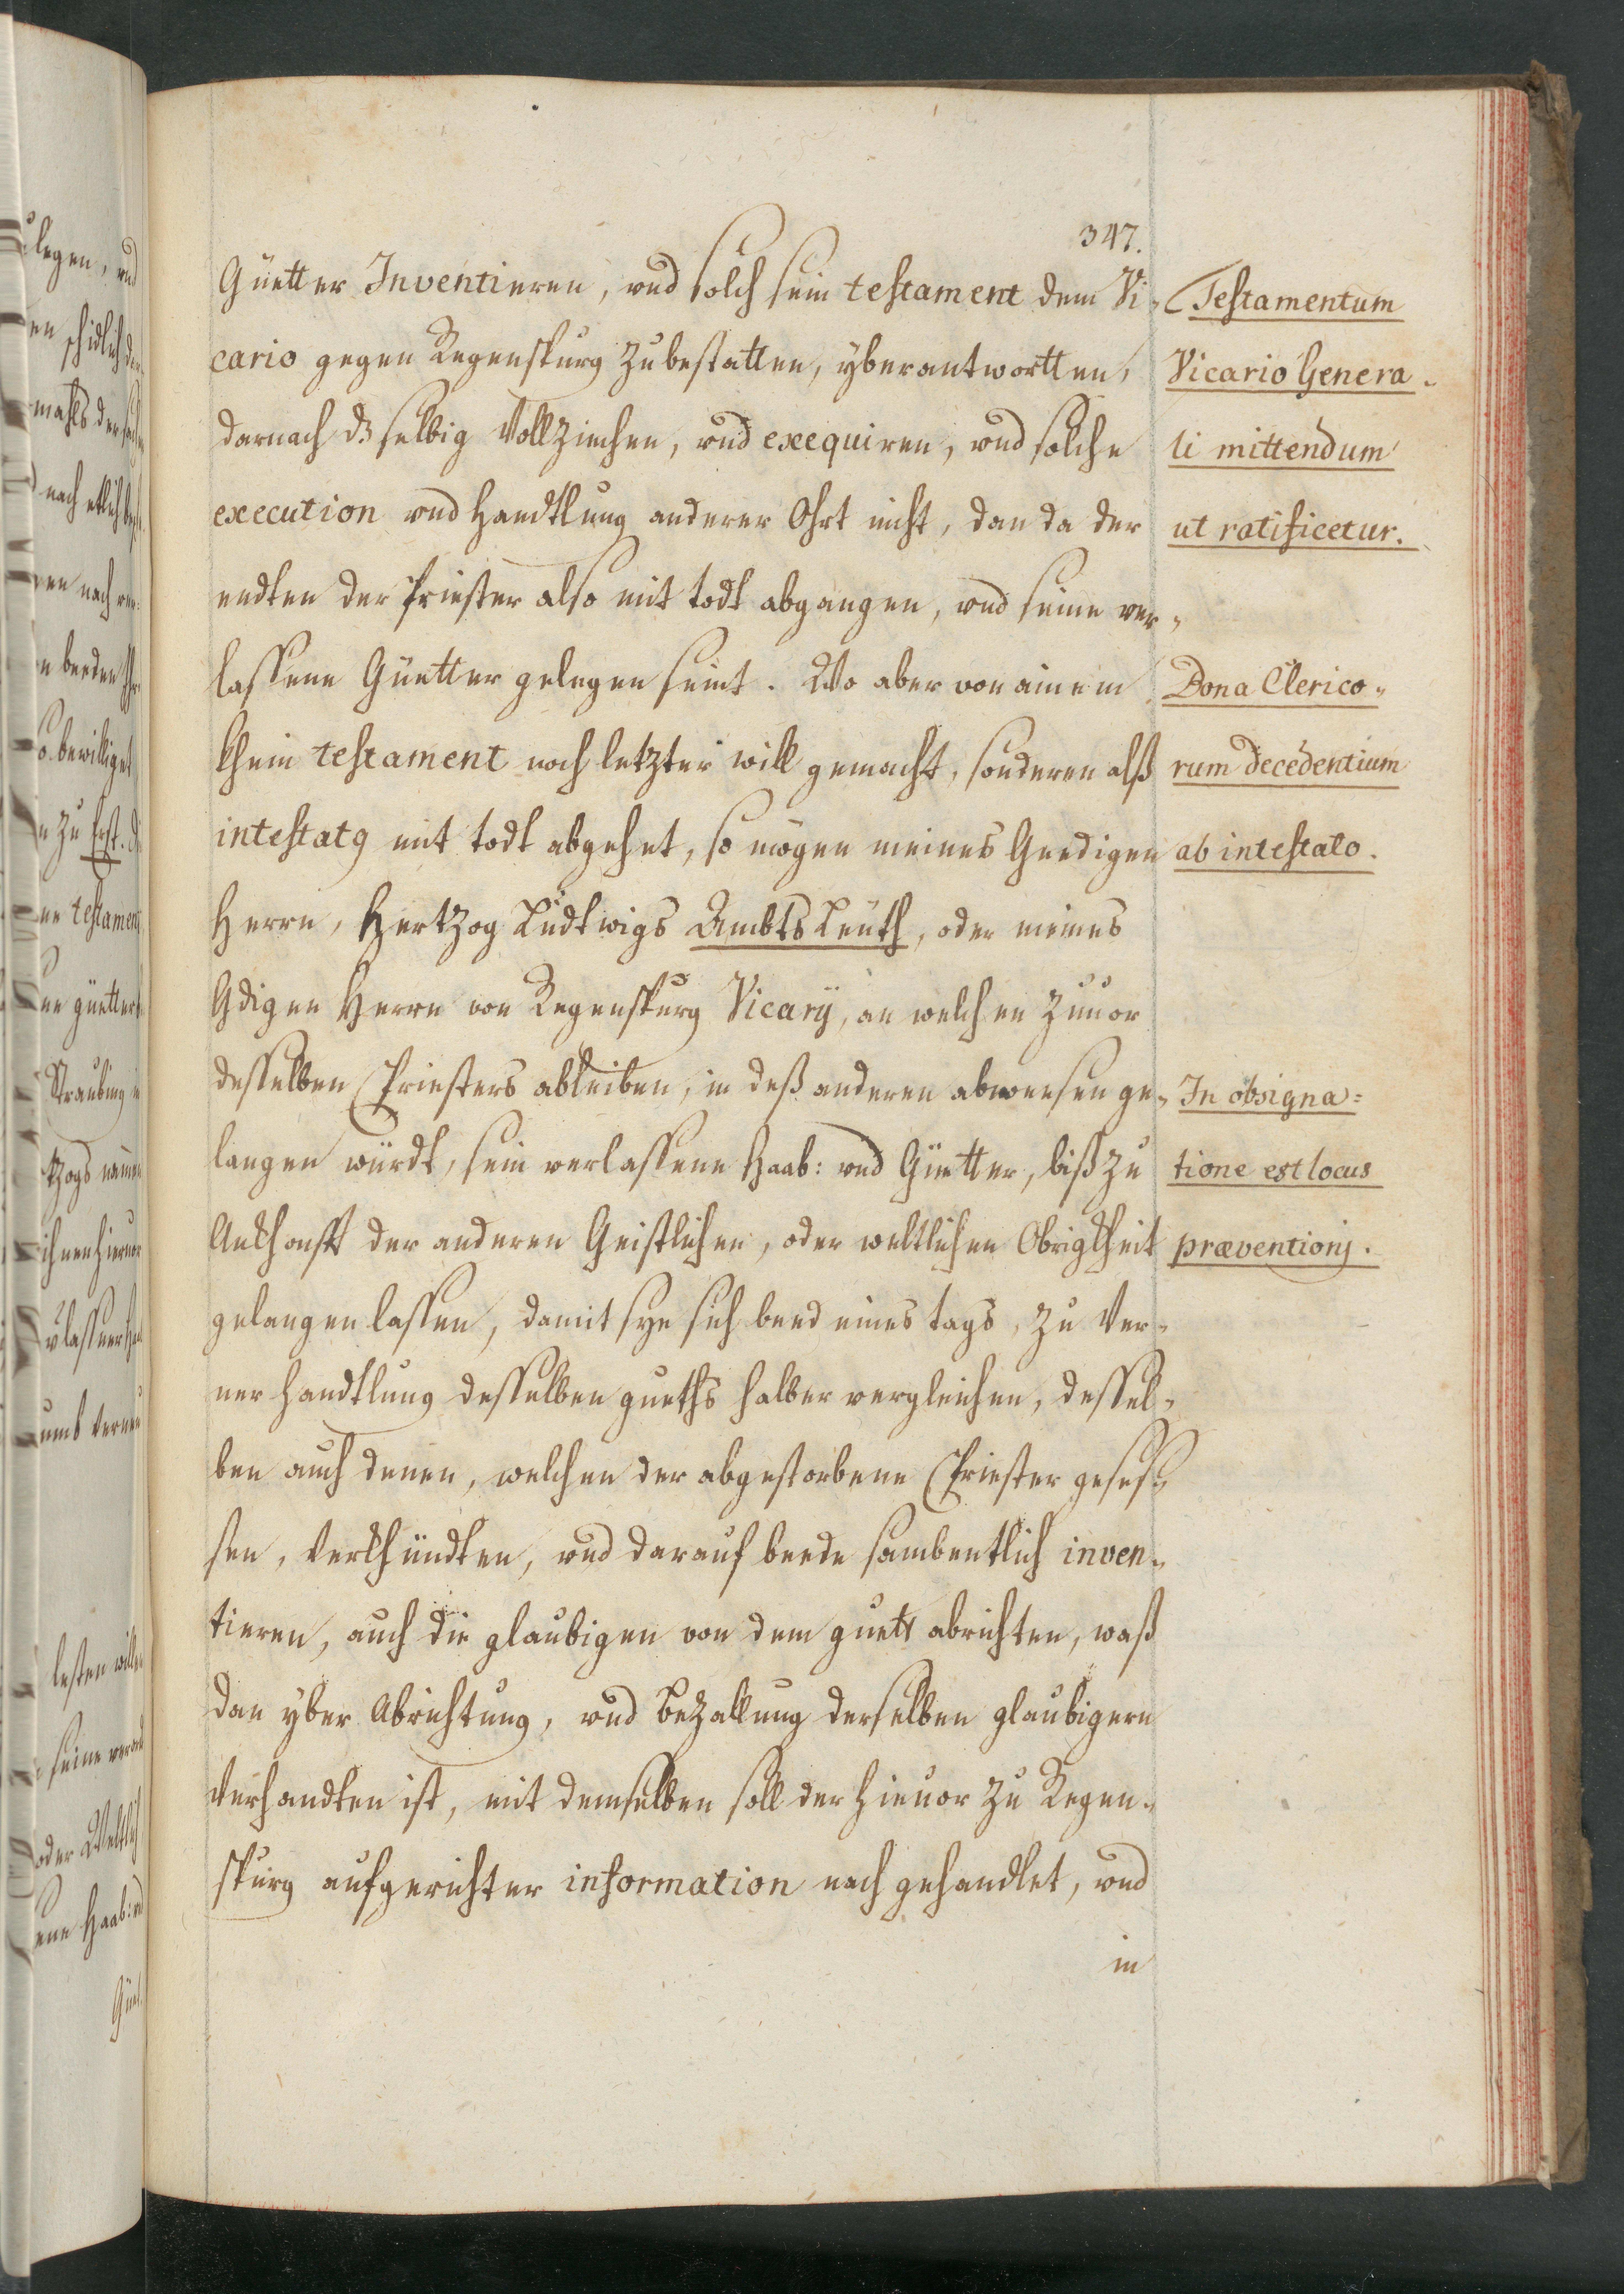 347.
Güetter Inventieren, und solch sein testament dem Vi-
cario gegen Regenspurg zubestatten, yberantwortten,
darnach dz selbig Vollziechen, und exequiren, und solche
execution und handtlung anderer Ohrt nicht, dan da der
endten der Priester also mit todt abgangen, und seine ver-
lassene Güetter gelegen seint. Wo aber von ainem
khein testament noch letzter will gemacht, sonderen alß
intestatg mit todt abgehet, so mögen meines Gnedigen
Herrn, Hertzog Ludtwigs AmbtsLeuth, oder meines
Gdigen Herrn von Regenspurg Vicarÿ, an welchen Zuuor
desselben Priesters ableiben, in deß anderen abweesen ge-
langen würdt, sein verlassene Haab: und Güetter, biß zu
Ankhonfft der anderen Geistlichen, oder weltlichen Obrigkheit
gelangen lassen, damit sye sich beed eines tags, zu Ver-
ner handtlung desselben gueths halber vergleichen, dessel-
ben auch denen, welchen der abgestorbene Priester gesess-
sen, Verkhündten, und darauf beede sambentlich inven-
tieren, auch die glaubigen von dem guett abrichten, waß
dan yber Abrichtung, und Bezallung derselben glaubigern
Verhandten ist, mit demselben soll der hieuor zu Regen-
spurg aufgerichter information nach gehandlet, und
in
Testamentum
Vicario Genera-
li mittendum
ut ratificetur.
Bona Clerico-
rum decedentium
ab intestato.
In obsigna=
tione est locus
præventionj.